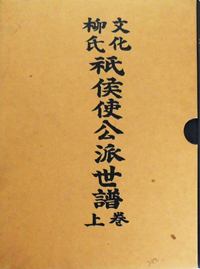 文化
柳氏
祇侯使公派世譜
卷上